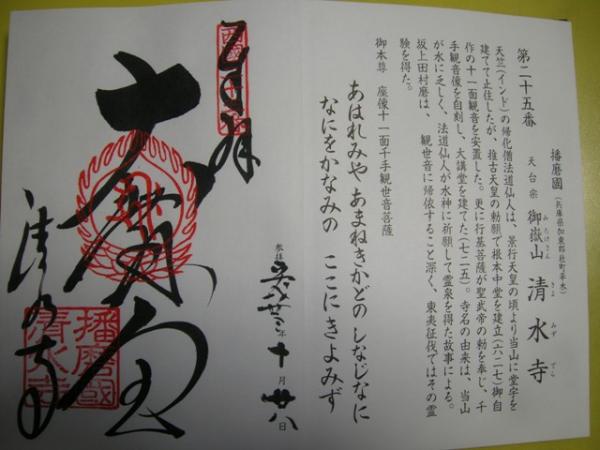 第二十五番
播磨國(兵庫県加東郡社町平木)
天台宗 御嶽山 清水寺
みたけさん きよ みず でら
天竺(インド)の帰化僧法道仙人は、景行天皇の頃より当山に堂宇を
建てて止住したが、推古天皇の勅願で根本中堂を建立(六二七)御自
作の十一面観音を安置した。更に行基菩薩が聖武帝の勅を奉じ、千
手観音像を自刻し、大講堂を建てた(七二五)。寺名の由来は、当山
が水に乏しく、法道仙人が水神に祈願して霊泉を得た故事による。
坂上田村麿は、観世音に帰依すること深く、東夷征伐ではその霊
験を得た。
御本尊 座像十一面千手観世音菩薩
あはれみや あまねきかどの しなじなに
なにをかなみの ここにきよみず
参拝 平成廿三年十月廿八日
奉拝
大悲殿
清水寺
播磨國
清水寺